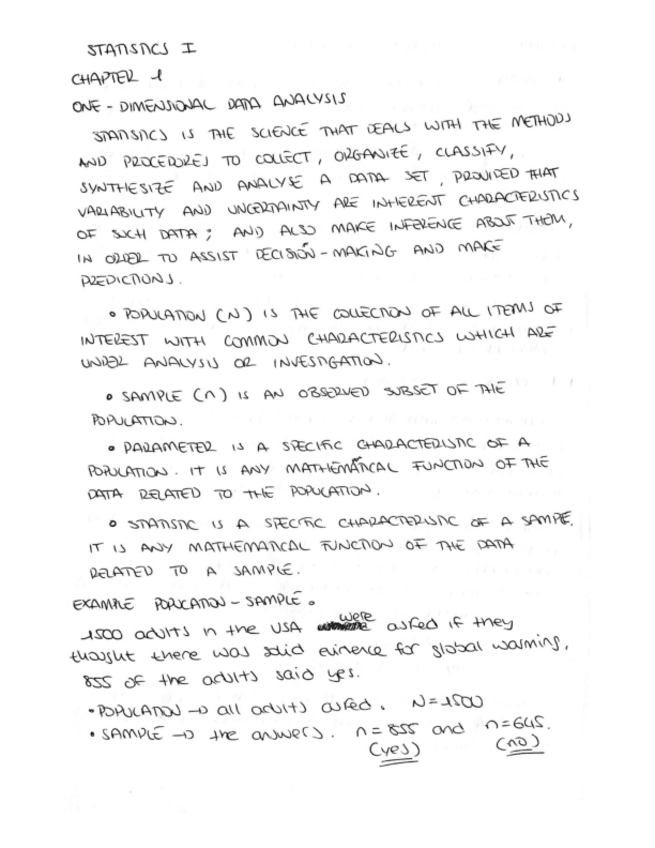 STATISTICS I
CHAPTER 1
ONE-DIMENSIONAL DATA ANALYSIS
STATISTICS IS THE SCIENCE THAT DEALS WITH THE METHODS
AND PROCEDURES TO COLLECT, ORGANIZE, CLASSIFY,
SYNTHESIZE AND ANALYSE A DATA SET, PROVIDED THAT
VARIABILITY AND UNCERTAINTY ARE INHERENT CHARACTERISTICS
OF SUCH DATA; AND ALSO MAKE INFERENCE ABOUT THEM,
IN ORDER TO ASSIST DECISION-MAKING AND MAKE
PREDICTIONS.
• POPULATION (N) IS THE COLLECTION OF ALL ITEMS OF
INTEREST WITH COMMON CHARACTERISTICS WHICH ARE
UNDER ANALYSIS OR INVESTIGATION.
• SAMPLE (n) IS AN OBSERVED SUBSET OF THE
POPULATION.
• PARAMETER IS A SPECIFIC CHARACTERISTIC OF A
POPULATION. IT IS ANY MATHEMATICAL FUNCTION OF THE
DATA RELATED TO THE POPULATION.
• STATISTIC IS A SPECIFIC CHARACTERISTIC OF A SAMPLE.
IT IS ANY MATHEMATICAL FUNCTION OF THE DATA
RELATED TO A SAMPLE.
EXAMPLE POPULATION-SAMPLE.
1500 adults n the USA were asked if they
thought there was solid evinence for global warming,
855 of the adults said yes.
• POPULATION → all adults asked. N=1500
• SAMPLE → the answers. n=855 and n=645.
(yes) (no)